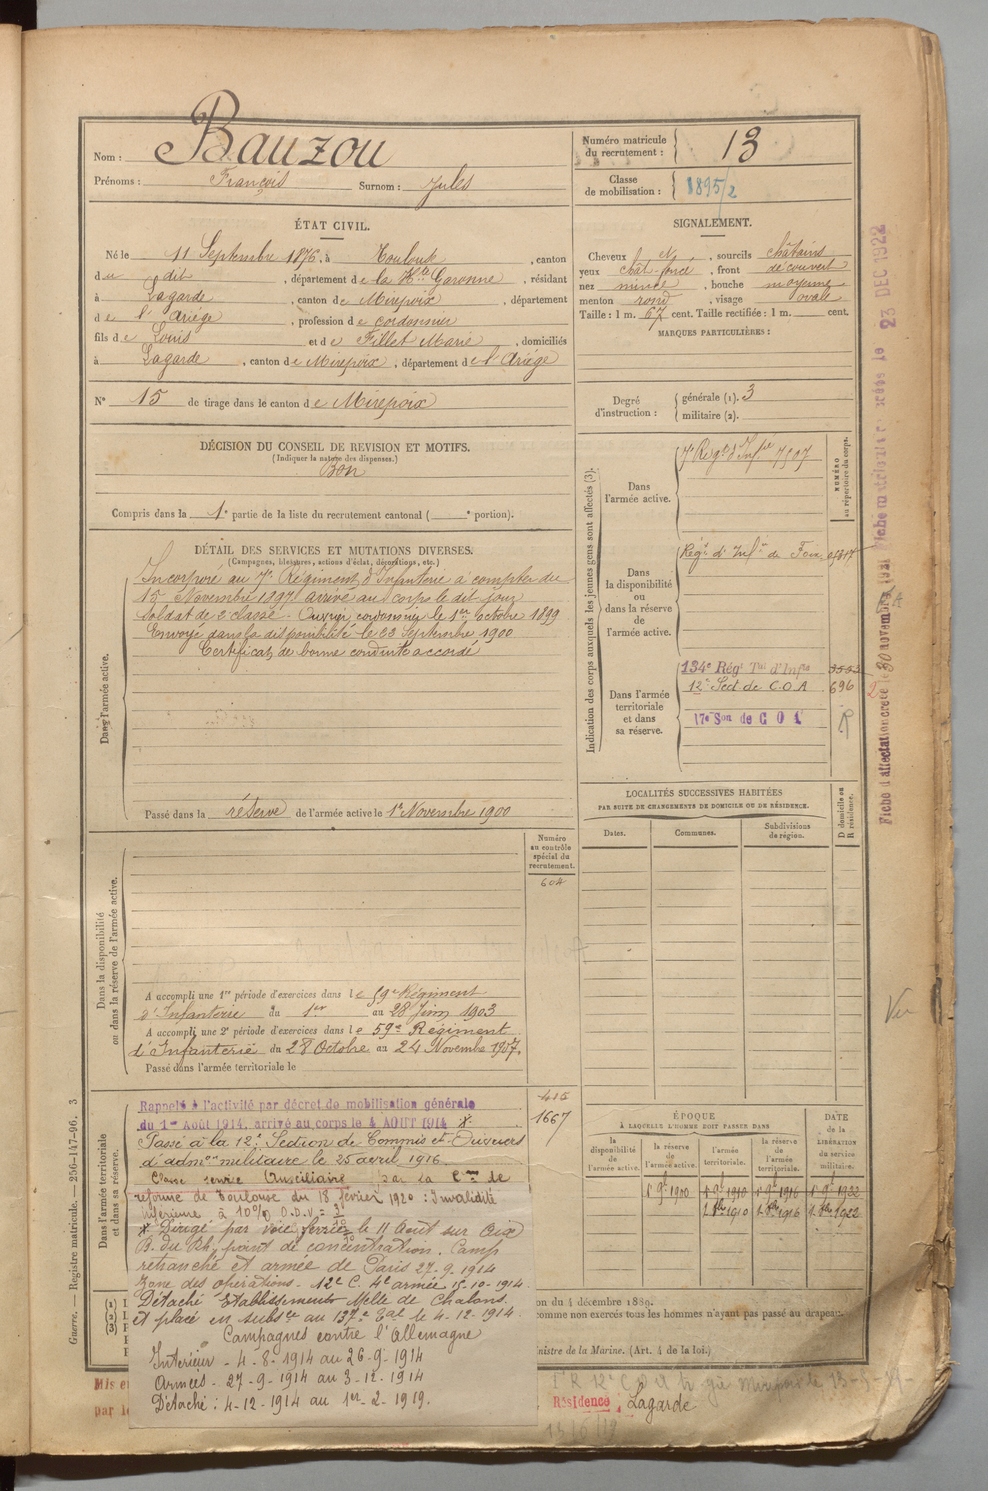 Nom : Bauzou
Prénoms : François Surnom : Jules
Numéro matricule du recrutement : 13
Classe de mobilisation : 1895/2
ÉTAT CIVIL.
Né le 11 Septembre 1876, à Toulouse, canton
du dit, département de la Hte Garonne, résidant
à Lagarde, canton de Mirepoix, département
de l'Ariége, profession de cordonnier
fils de Louis et de Fillet Marie, domiciliés
à Lagarde, canton de Mirepoix, département de l'Ariége
N° 15 de tirage dans le canton de Mirepoix
SIGNALEMENT.
Cheveux et, sourcils châtains
yeux chât-foncé, front découvert
nez mince, bouche moyenne
menton rond, visage ovale
Taille : 1 m. 67 cent. Taille rectifiée : 1 m. cent.
MARQUES PARTICULIÈRES :
Degré d'instruction : générale (1). 3
militaire (2).
DÉCISION DU CONSEIL DE REVISION ET MOTIFS.
(Indiquer la nature des dispenses.)
Bon
Compris dans la 1e partie de la liste du recrutement cantonal ( e portion).
DÉTAIL DES SERVICES ET MUTATIONS DIVERSES.
(Campagnes, blessures, actions d'éclat, décorations, etc.)
Dans l'armée active.
Incorporé au 7e Régiment d'Infanterie à compter du
15 Novembre 1897 arrivé au corps le dit jour
soldat de 2e classe. Ouvrier cordonnier le 1er octobre 1899
Envoyé dans la disponibilité le 23 Septembre 1900
Certificat de bonne conduite accordé
Passé dans la réserve de l'armée active le 1er Novembre 1900
Indication des corps auxquels les jeunes gens sont affectés (3).
NUMÉRO au répertoire du corps.
Dans l'armée active.
7e Regt d'Infie 7507
Dans la disponibilité ou dans la réserve de l'armée active.
Régt d'Infie de Foix
Dans l'armée territoriale et dans sa réserve.
134e Régt Tal d'Infie
12e Sect de C.O.A 696
17e Son de C O A
LOCALITÉS SUCCESSIVES HABITÉES
PAR SUITE DE CHANGEMENTS DE DOMICILE OU DE RÉSIDENCE.
Dates. Communes. Subdivisions de région. D domicile ou R résidence.
Numéro au contrôle spécial du recrutement.
604
Dans la disponibilité ou dans la réserve de l'armée active.
A accompli une 1re période d'exercices dans le 59e Régiment
d'Infanterie du 1er au 28 Juin 1903
A accompli une 2e période d'exercices dans le 59e Régiment
d'Infanterie du 28 Octobre au 24 Novembre 1907.
Passé dans l'armée territoriale le
Dans l'armée territoriale et dans sa réserve.
415
1667
Rappelé à l'activité par décret de mobilisation générale
du 1er Août 1914, arrivé au corps le 4 AOUT 1914 *.
Passé à la 12e Section de Commis et Ouvriers
d'admon militaire le 25 avril 1916.
Classé service Auxiliaire par la Con de
réforme de Toulouse du 18 février 1920 : Invalidité
inférieure à 10%
* Dirigé par voie ferrée le 11 Août sur Aix
B. du Rh. point de concentration. Camp
retranché et armée de Paris 27-9-1914
Zone des opérations - 12e C. 4e armée 15-10-1914.
Détaché Etablissements Melle de Chalons.
et placé en subsce au 137e Tal le 4-12-1914.
Campagnes contre l'Allemagne
Intérieur - 4-8-1914 au 26-9-1914
Armées - 27-9-1914 au 3-12-1914
Détaché : 4-12-1914 au 1er-2-1919.
ÉPOQUE
À LAQUELLE L'HOMME DOIT PASSER DANS
la disponibilité de l'armée active. la réserve de l'armée active. l'armée territoriale. la réserve de l'armée territoriale.
DATE de la LIBÉRATION du service militaire.
1er 9bre 1900 1er 9bre 1910 1er 9bre 1916 1er 9bre 1922
1910 1916 1922
on du 4 décembre 1889.
comme non exercés tous les hommes n'ayant pas passé au drapeau.
nistre de la Marine. (Art. 4 de la loi.)
Mis e
par l
Résidence : Lagarde
Guerre. — Registre matricule. — 256-147-96. 3
23 DEC 1922
Vu